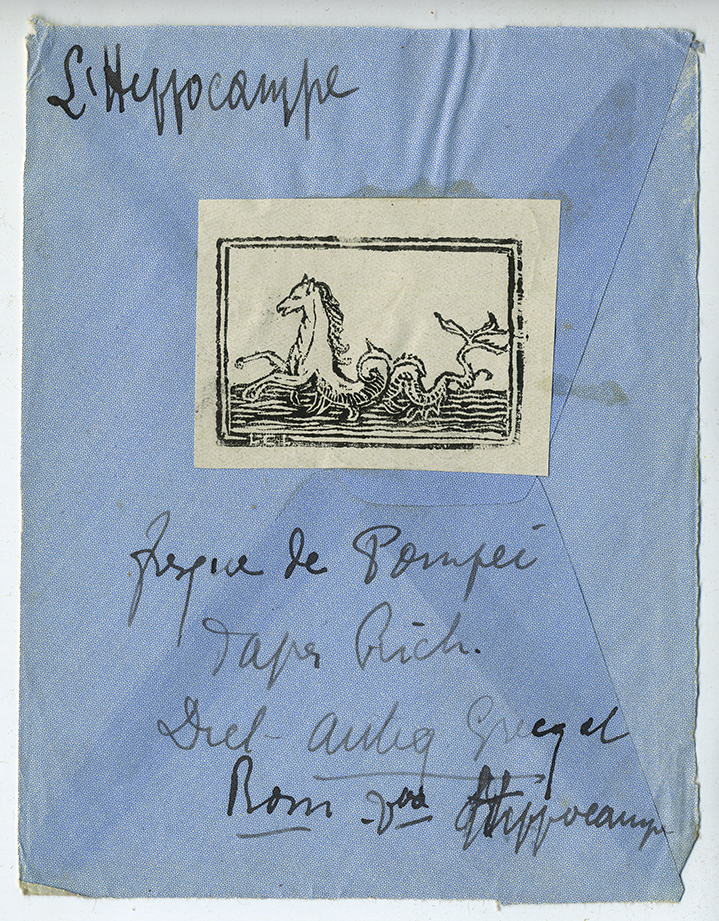 L'Hippocampe
fresque de Pompei
d'après Rich.
Dict- antiq Grecq et
Rom - Voo Hippocampe